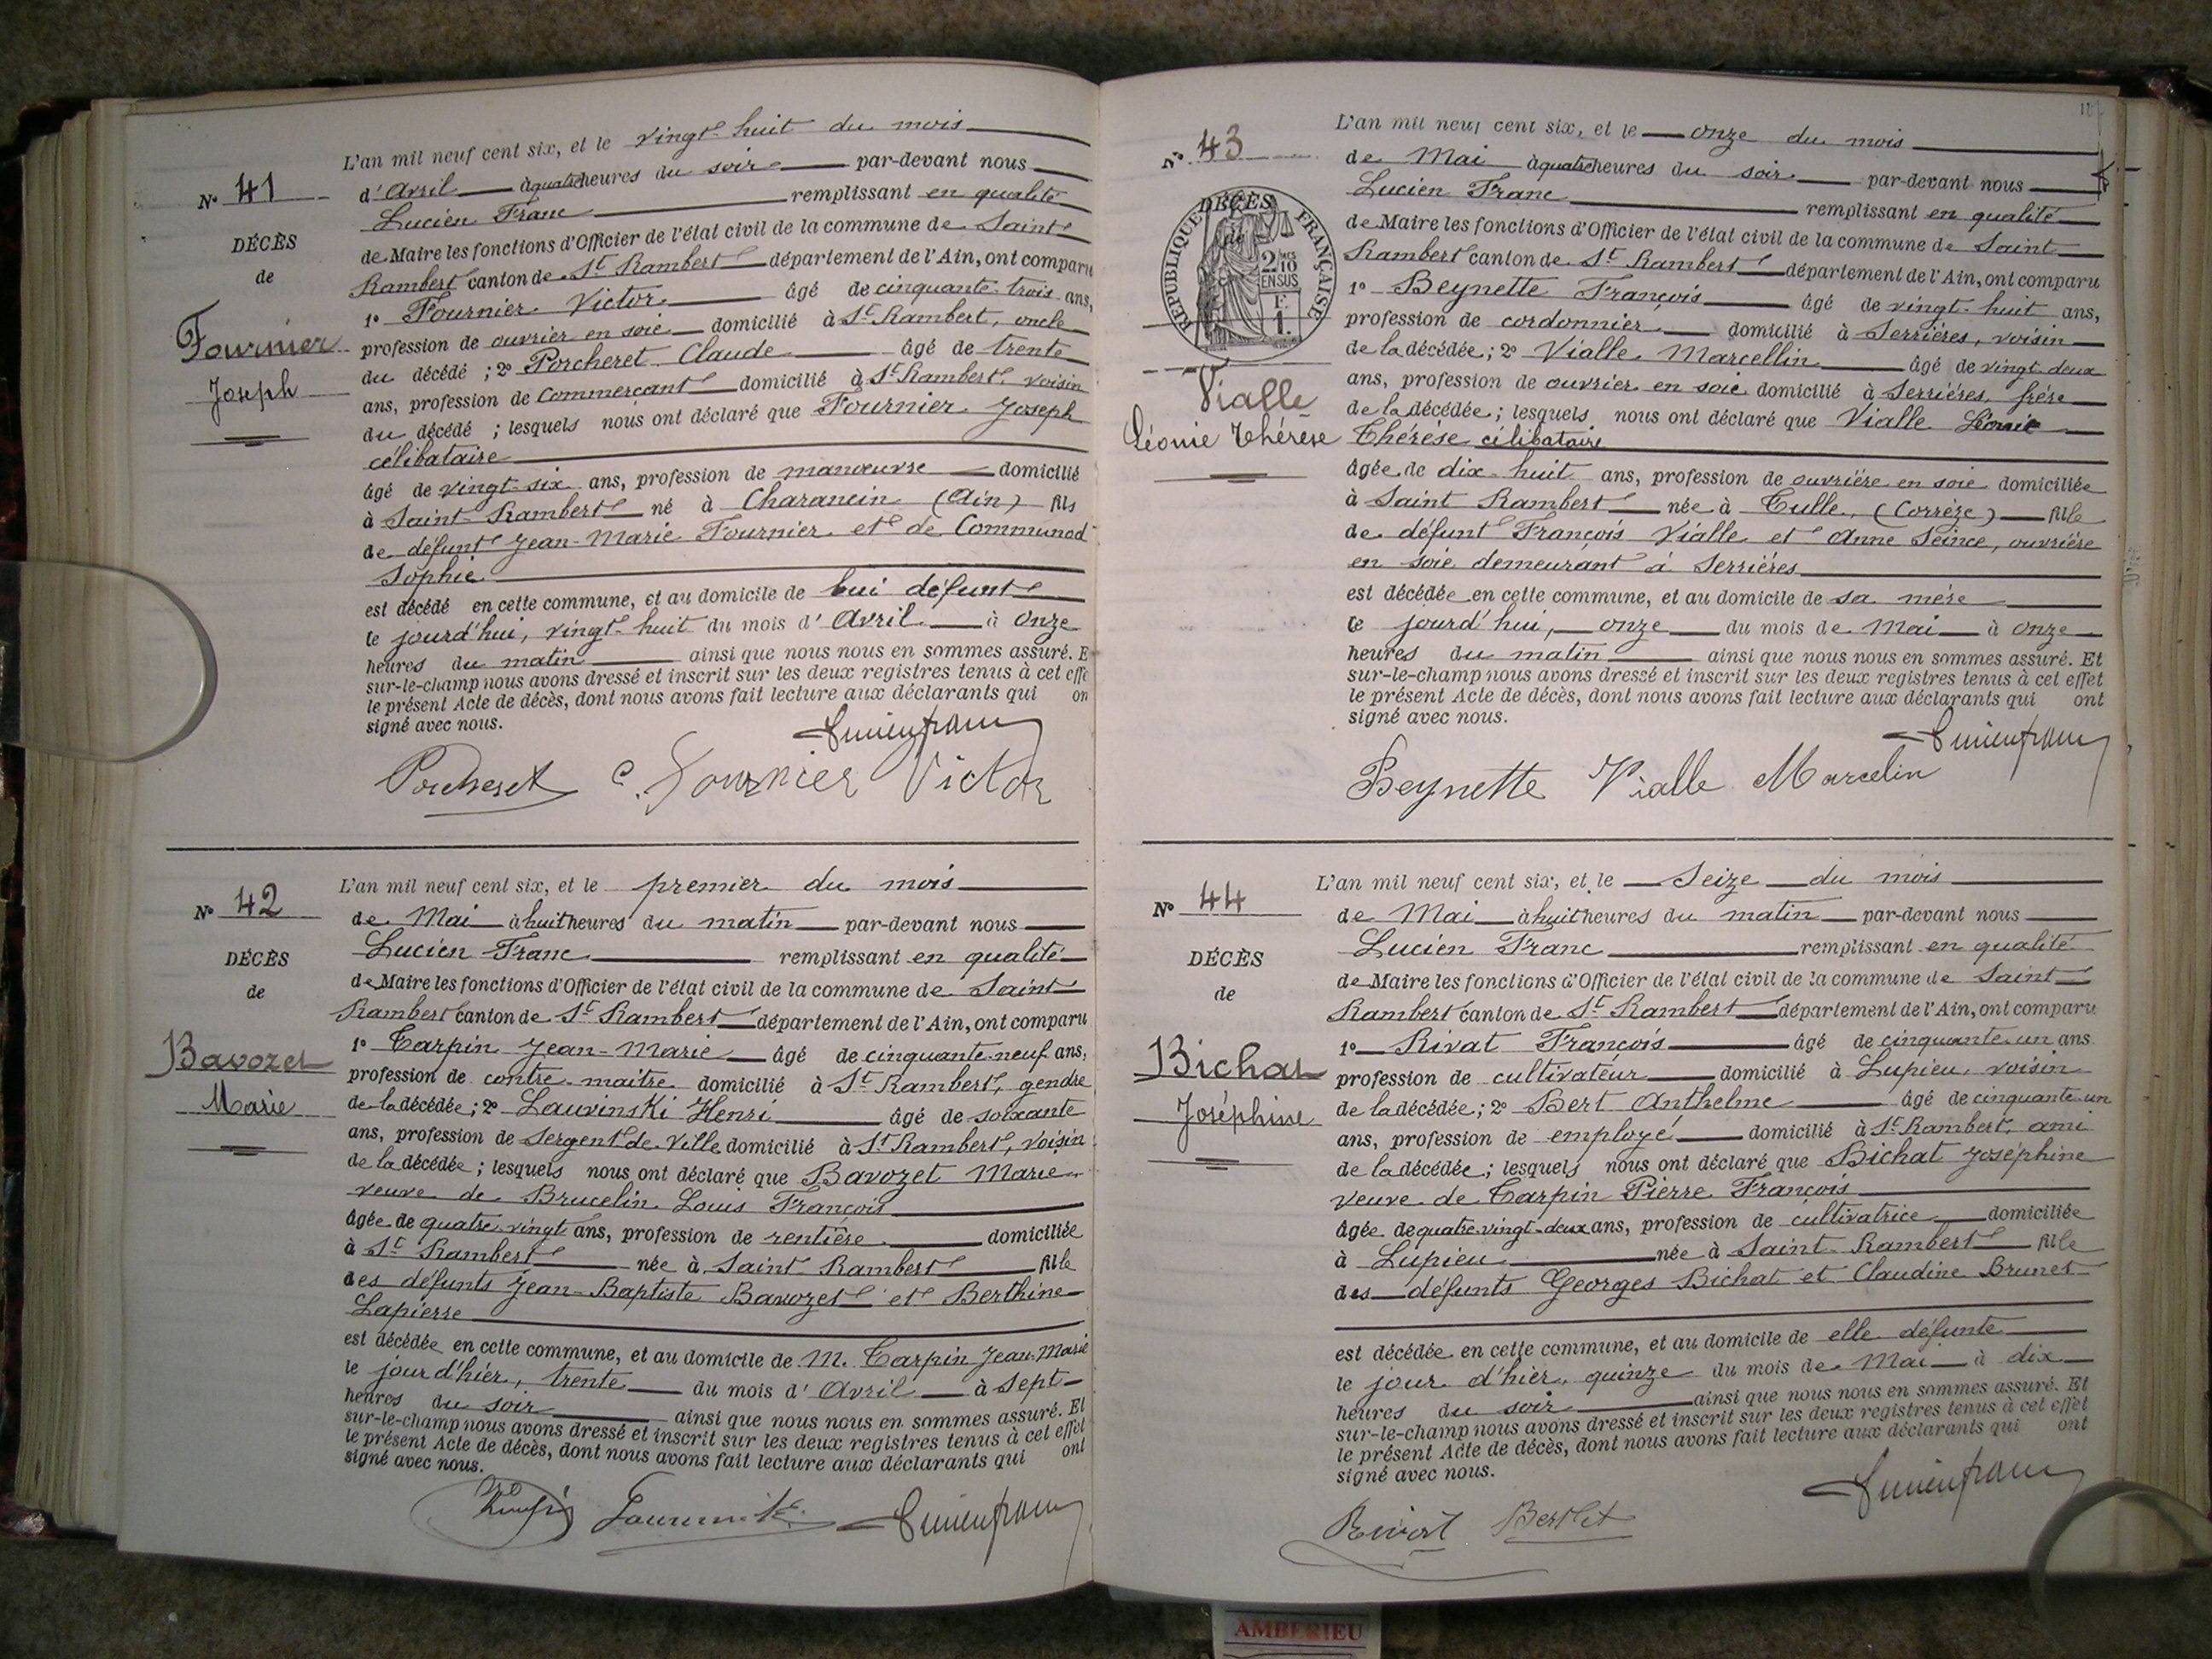 L'an mil neuf cent six, et le vingt-huit du mois
N° 41
d'Avril à quatre heures du soir par-devant nous
Lucien Franc remplissant en qualité
DÉCÈS
de Maire les fonctions d'Officier de l'état civil de la commune de Saint
de
Rambert canton de St Rambert département de l'Ain, ont comparu
1° Fournier Victor âgé de cinquante-trois ans,
Fournier
profession de ouvrier en soie domicilié à St Rambert, oncle
du décédé ; 2° Porcheret Claude âgé de trente
Joseph
ans, profession de Commerçant domicilié à St Rambert, voisin
du décédé ; lesquels nous ont déclaré que Fournier Joseph
célibataire
âgé de vingt-six ans, profession de manœuvre domicilié
à Saint-Rambert né à Charancin (Ain) fils
de défunt Jean-Marie Fournier et de Communod
Sophie
est décédé en cette commune, et au domicile de lui défunt
le jourd'hui, vingt-huit du mois d'Avril à onze
heures du matin ainsi que nous nous en sommes assuré. E
sur-le-champ nous avons dressé et inscrit sur les deux registres tenus à cet effe
le présent Acte de décès, dont nous avons fait lecture aux déclarants qui on
signé avec nous.
Lucien franc
Porcheret C. Fournier Victor
L'an mil neuf cent six, et le premier du mois
N° 42
de Mai à huit heures du matin par-devant nous
Lucien Franc remplissant en qualité
DÉCÈS
de Maire les fonctions d'Officier de l'état civil de la commune de Saint
de
Rambert canton de St Rambert département de l'Ain, ont comparu
1° Tarpin Jean-Marie âgé de cinquante-neuf ans,
Bavozet
profession de contre-maitre domicilié à St Rambert, gendre
Marie
de la décédée ; 2° Lauvinski Henri âgé de soixante
ans, profession de Sergent de Ville domicilié à St Rambert, voisin
de la décédée ; lesquels nous ont déclaré que Bavozet Marie
veuve de Brucelin Louis François
âgée de quatre-vingt ans, profession de rentière domiciliée
à St Rambert née à Saint-Rambert fille
des défunts Jean-Baptiste Bavozet et Berthine
Lapierre
est décédée en cette commune, et au domicile de M. Tarpin Jean-Marie
le jour d'hier, trente du mois d'Avril à sept
heures du soir ainsi que nous nous en sommes assuré. Et
sur-le-champ nous avons dressé et inscrit sur les deux registres tenus à cet effet
le présent Acte de décès, dont nous avons fait lecture aux déclarants qui ont
signé avec nous.
Lucien franc
L'an mil neuf cent six, et le onze du mois
N° 43
de Mai à quatre heures du soir par-devant nous
Lucien Franc remplissant en qualité
DÉCÈS
de
RÉPUBLIQUE FRANÇAISE
2/10 EN SUS
F. 1.
de Maire les fonctions d'Officier de l'état civil de la commune de Saint
Rambert canton de St Rambert département de l'Ain, ont comparu
1° Beynette François âgé de vingt-huit ans,
profession de cordonnier domicilié à Serrières, voisin
de la décédée ; 2° Vialle Marcellin âgé de vingt-deux
Vialle
ans, profession de ouvrier en soie domicilié à Serrières, frère
de la décédée ; lesquels nous ont déclaré que Vialle Léonie
Léonie Thérèse
Thérèse célibataire
âgée de dix-huit ans, profession de ouvrière en soie domiciliée
à Saint Rambert née à Tulle, (Corrèze) fille
de défunt François Vialle et Anne Seince, ouvrière
en soie demeurant à Serrières
est décédée en cette commune, et au domicile de sa mère
le jourd'hui, onze du mois de Mai à onze
heures du matin ainsi que nous nous en sommes assuré. Et
sur-le-champ nous avons dressé et inscrit sur les deux registres tenus à cet effet
le présent Acte de décès, dont nous avons fait lecture aux déclarants qui ont
signé avec nous.
Lucien franc
Beynette Vialle Marcelin
L'an mil neuf cent six, et le Seize du mois
N° 44
de Mai à huit heures du matin par-devant nous
Lucien Franc remplissant en qualité
DÉCÈS
de Maire les fonctions d'Officier de l'état civil de la commune de Saint
de
Rambert canton de St Rambert département de l'Ain, ont comparu
1° Rivat François âgé de cinquante-un ans
Bichat
profession de cultivateur domicilié à Lupieu, voisin
de la décédée ; 2° Bert Anthelme âgé de cinquante-un
Joséphine
ans, profession de employé domicilié à St Rambert, ami
de la décédée ; lesquels nous ont déclaré que Bichat Joséphine
veuve de Tarpin Pierre François
âgée de quatre-vingt-deux ans, profession de cultivatrice domiciliée
à Lupieu née à Saint-Rambert fille
des défunts Georges Bichat et Claudine Brunet
est décédée en cette commune, et au domicile de elle défunte
le jour d'hier, quinze du mois de Mai à dix
heures du soir ainsi que nous nous en sommes assuré. Et
sur-le-champ nous avons dressé et inscrit sur les deux registres tenus à cet effet
le présent Acte de décès, dont nous avons fait lecture aux déclarants qui ont
signé avec nous.
Lucien franc
AMBERIEU